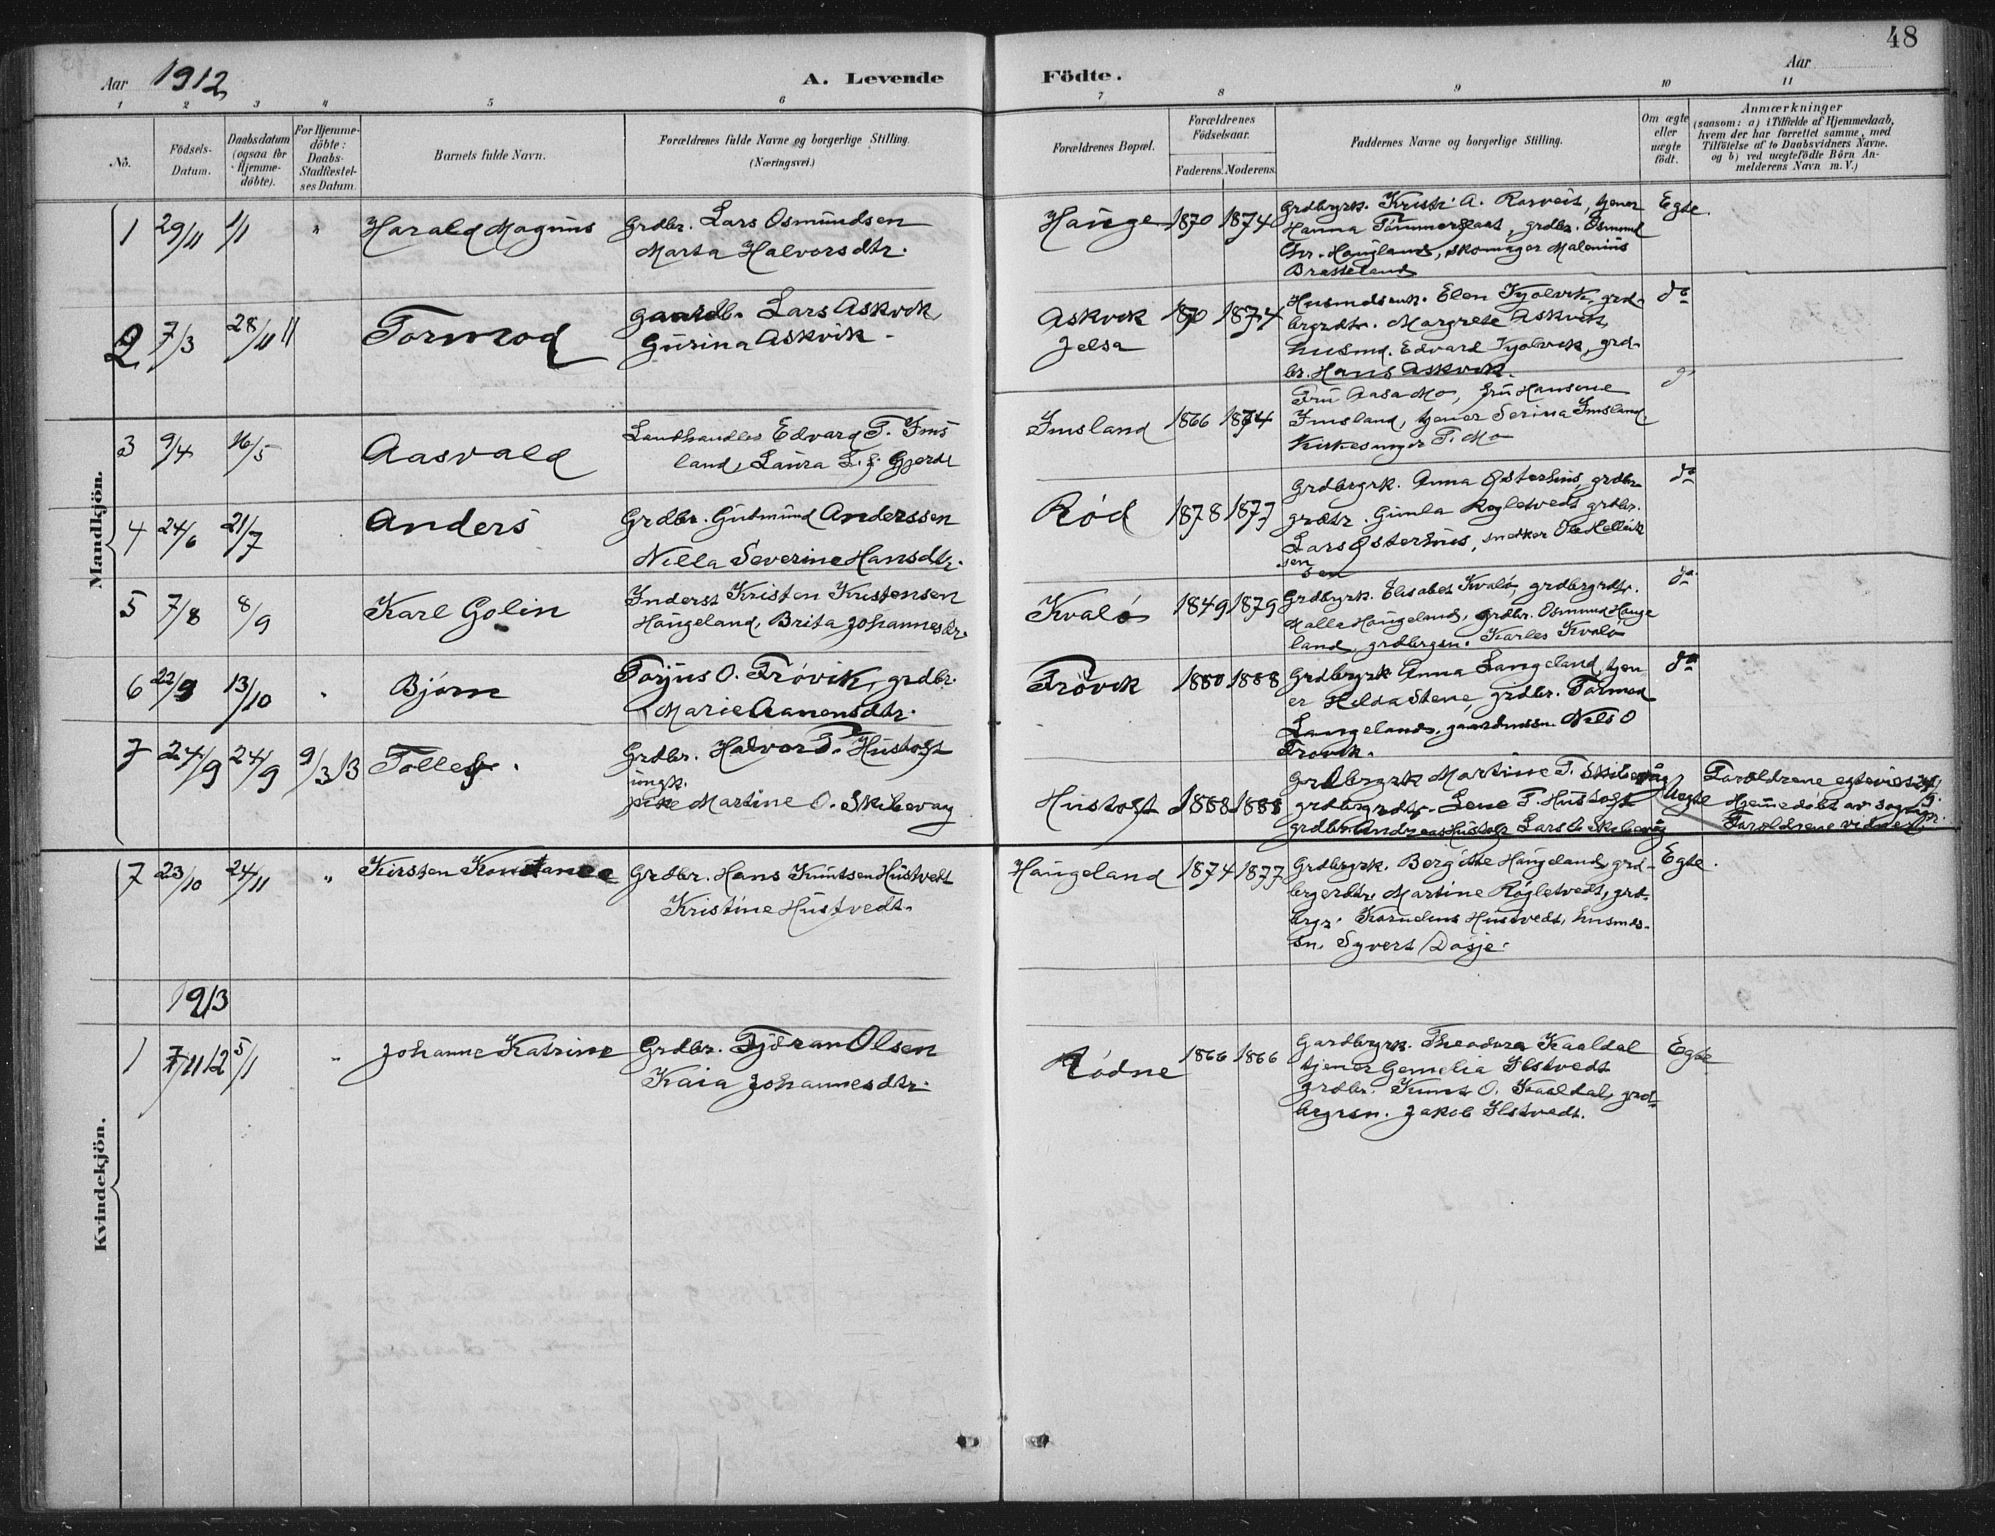 48
Aar 1912
A. Levende Födte.
Aar
1 2 3 4 5 6 7 8 9 10 11
No.
Födsels-
Datum.
Daabsdatum
(ogsaa for
Hjemme-
döbte).
For Hjemme-
döbte:
Daabs-
Stadfæstel-
ses Datum.
Barnets fulde Navn.
Forældrenes fulde Navne og borgerlige Stilling.
(Næringsvei.)
Forældrenes Bopæl.
Forældrenes
Födselsaar.
Faderens. Moderens.
Faddernes Navne og borgerlige Stilling.
Om ægte
eller
uægte
födt.
Anmærkninger
(saasom: a) i Tilfælde af Hjemmedaab,
hvem der har forrettet samme, med
Tilföielse af to Daabsvidners Navne.
og b) ved uægtefödte Börn An-
melderens Navn m. V.)
Mandkjön.
1 29/11 1/1 " Harald Magnus
Grdbr. Lars Osmundsen
Marta Halvorsdtr.
Hauge 1870 1874
Grdbryrk. Kristi A. Rorveit, tjener
Hanna Tömmerstaat, grdbr. Osmund
Chr. Haugland, skomager Malenius
Bratteland
Egte
2 7/3 28/11 11 Tormod
Gaardb. Lars Askvik
Gurina Askvik
Askvik
Jelsa
1870 1874
Husmdsenk. Elen Tjolvik, grd-
brgrdtr. Margrete Askvik,
husmd. Edvard Tjolvik, grd-
br. Hans Askvik.
do
3 9/4 16/5 Aasvald
Landhandler Edvard T. Ims
land, Laura L. f. Gjerde
Imsland 1866 1874
Fru Aasa Mo, fru Hansene
Imsland, tjener Serina Imsland
Kirkesanger T. Mo
4 24/6 21/7 Anders
Grdbr. Gudmund Anderssen
Nilla Severine Hansdtr.
Rød 1878 1877
Grdbrgrk. Anna Østerhus, grdbr-
grdtr. Gunla Rogletvedt grdbr.
Lars Østerhus, snedker Ole Helliksen
do
5 7/8 8/9 Karl Golin
Inderst Kristen Kristensen
Haugeland, Brita Johannesdtr.
Kvalø 1849 1879
Grdbryrk. Elisabet Kvalø, grdbrgrdtr.
Malla Haugeland, grdbr. Osmund Hauge
land, grdbrgsn. Karles Kvalø
do
6 22/9 13/10 " Bjørn
Torjus O. Trövik, grdbr.
Marie Aanensdtr.
Trövik 1880 1888
Grdbrgrk Anna Langeland, tjen
er Hilda Stene, grdbr. Tormod
Langeland, gaardmssn. Nils O
Trövik.
do
7 24/9 24/9 9/3 13 Tollef
Grdbr. Halvor T. Hustoft
ungk.
pike Martine O. Skibevaag
Hustoft 1888 1888
Grdbrgrk Martine T. Skibevåg
grdbrgrdtr. Lene T. Hustoft
grdbr. Andreas Hustoft Lars O Skibevåg
Uegte
Foroldrene egteviet 24/9.
Hjemedöbt av sogn pr.
Foroldrene vidner.
Kvindekjön.
7 23/10 24/11 " Kirsten Konstance
Grdbr. Hans Knutsen Hustvedt
Kristine Hustvedt.
Haugeland 1874 1877
Grdbrgrk. Bergitte Haugeland, grd-
brgerdtr. Martine Røgletvedt, grd-
brgr. Kornelius Hustvedt, husmds-
sn. Syvert Dosje.
Egte
1913
1 7/11 12 5/1 " Johanne Katrine
Grdbr. Fjöran Olsen
Kaia Johannesdtr.
Rødne 1866 1866
Gardbryrk. Theodora Kaaldal
tjener Gemelia Ilstvedt
grdbr. Knut O. Kaaldal, grd-
brgrsn. Jakob Ilstvedt.
Egte